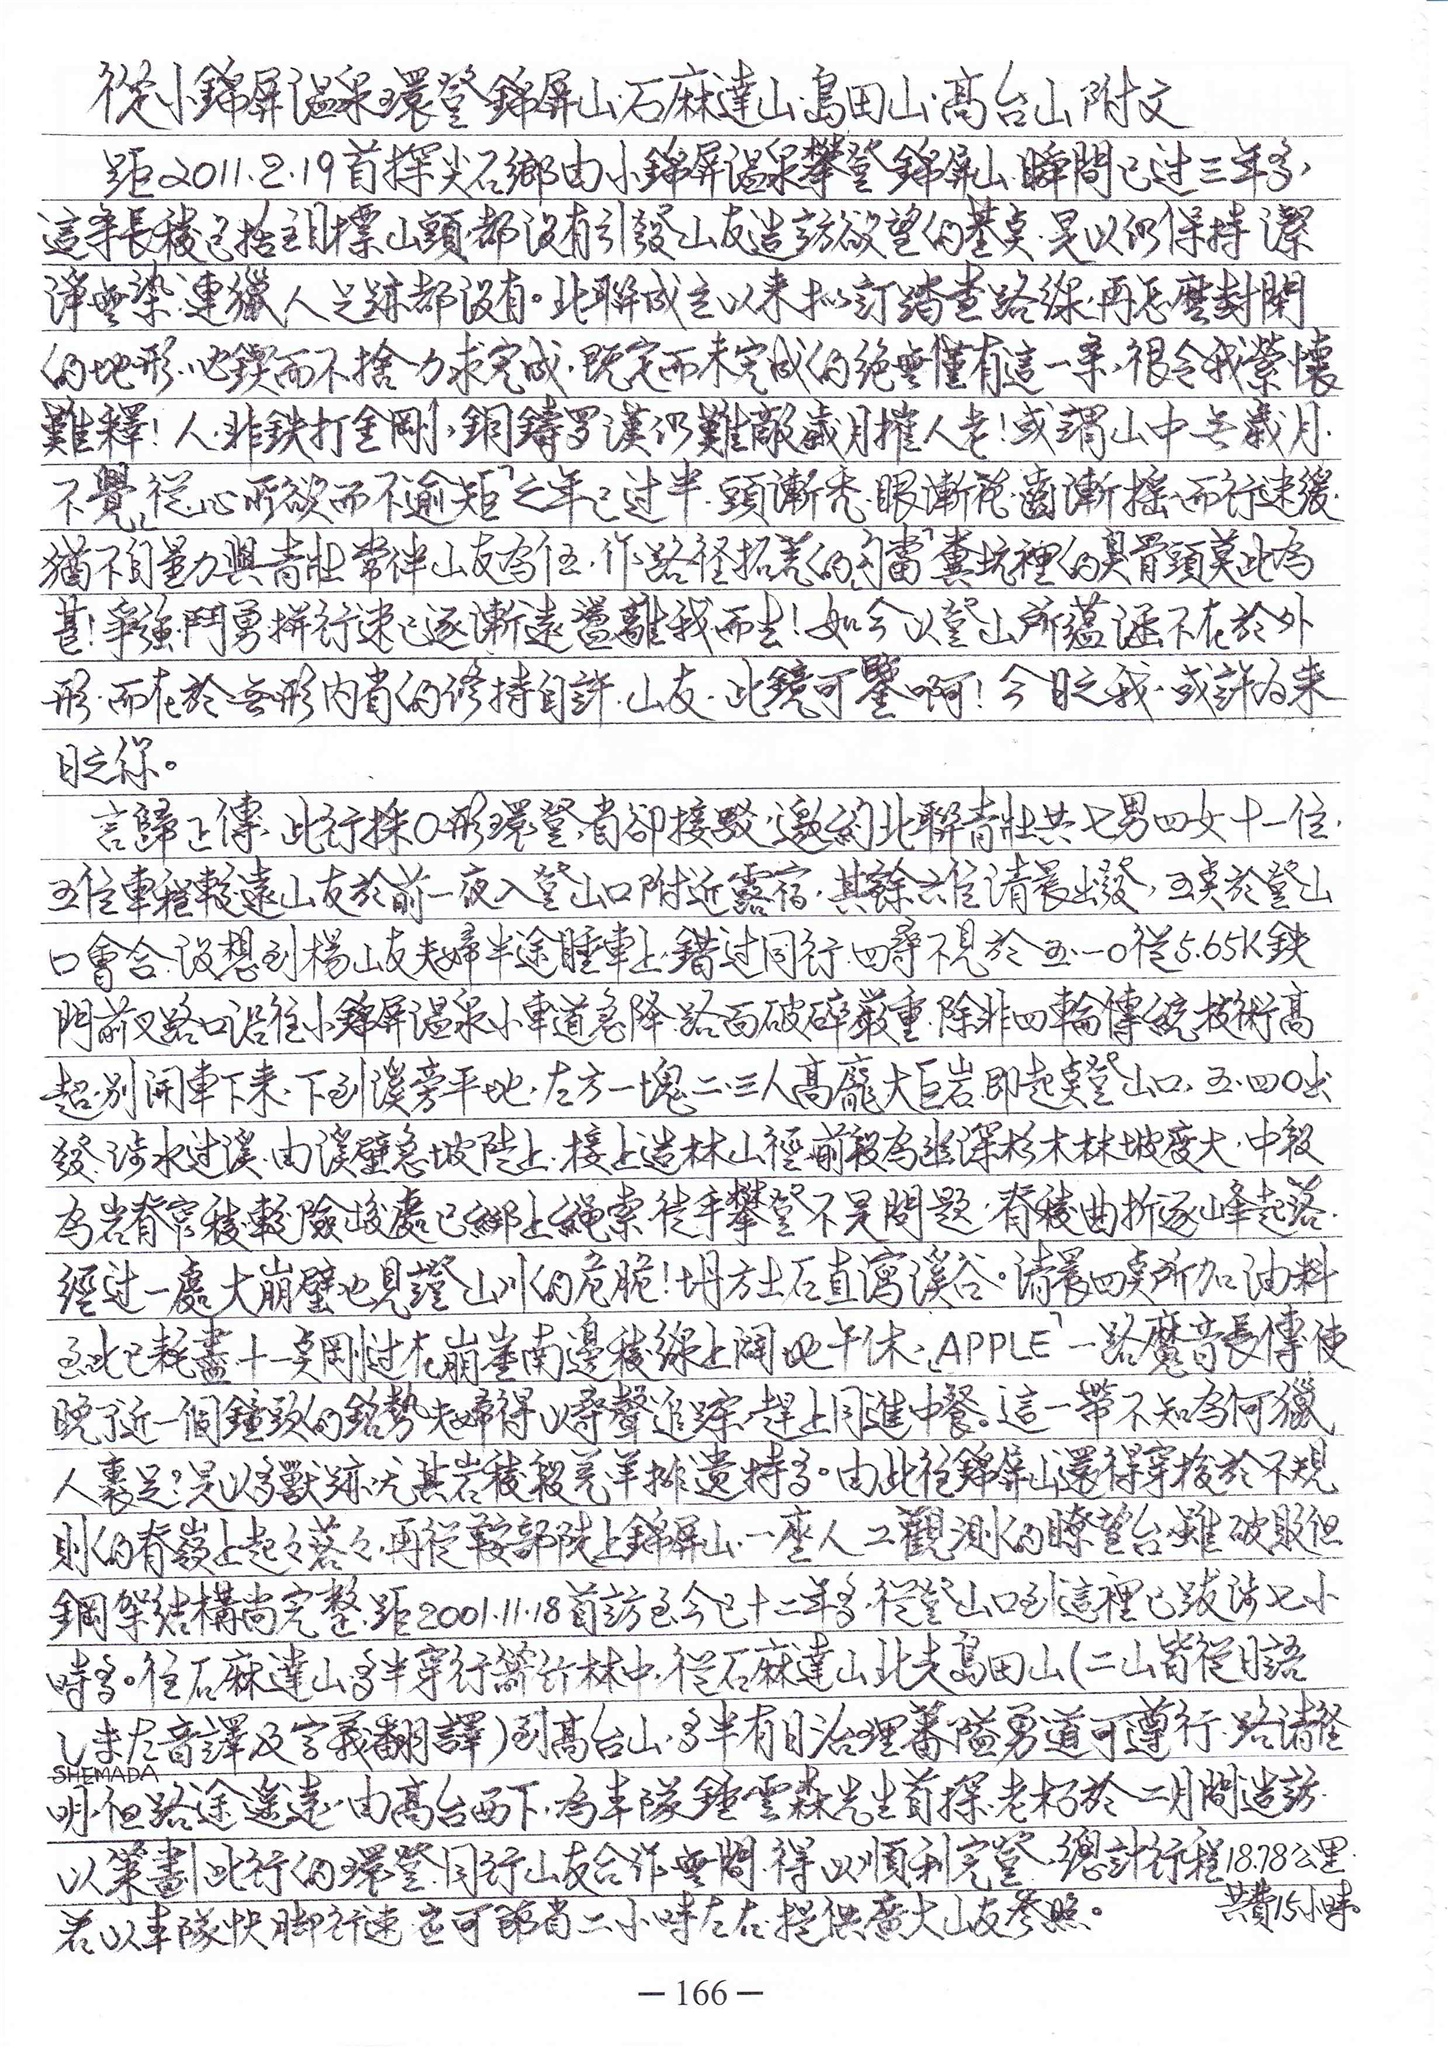 從小錦屏溫泉環登錦屏山·石麻達山·島田山·高台山附文
距2011.2.19首探尖石鄉由小錦屏溫泉攀登錦屏山·瞬間已过三年多,
這爭長稜已捨主目標山頭都沒有引發山友造訪欲望的基矣·是以仍保持潔
淨無染·連獵人足跡都沒有。北聯成立以来拟訂踏查路線·再怎麼封閉
的地形·必鍥而不捨力求完成·既定而未完成的絶無僅有這一条,很令我縈懷
難釋!人·非鉄打金剛,銅鑄罗漢仍難敵歲月摧人老!或謂山中无歲月·
不覺「從心所欲而不逾矩」之年已过半·頭漸禿·眼漸花·齒漸摇·而行速緩·
猶不自量力與青壯常伴山友為伍·作路徑拓荒的勾當「糞坑裡的臭骨頭莫此為
甚!爭強鬥勇拼行速已逐漸遠盪離我而去!如今以登山所蘊涵不在於外
形·而在於无形內省的修持自許·山友·此鏡可鑒啊!今日之我·或許为来
日之你。
言歸正傳·此行採O形環登·省卻接駁·邀約北聯青壯共七男四女十一位·
五位車程較遠山友於前一夜入登山口附近露宿·其餘六位清晨出發,五奌於登山
口會合·沒想到楊山友夫婦半途睡車上·錯过同行·四尋不見於五·一〇從5.65K鉄
門前叉路口沿往小錦屏溫泉小車道急降·路面破碎嚴重·除非四輪傳統技術高
超·別開車下来·下到溪旁平地·左方一塊二·三人高龐大巨岩即起奌登山口·五·四〇出
發·涉水过溪·由溪壁急坡陡上·接上造林山徑·前段為幽深杉木林坡度大·中段
為岩脊窄稜·較險峻處已綁上繩索·徒手攀登不是問題·脊稜曲折逐峰起落·
經过一處大崩壁也見證山川的危脆!坍方土石直瀉溪谷。清晨四奌所加油料
至此已耗盡十一奌剛过在崩崖南邊稜線上闢地午休·「APPLE」一路魔音長傳使
晚了近一個鐘頭的銘勢夫婦得以尋聲追踪·趕上同進中餐。這一帶不知為何獵
人裹足?是以多獸跡·尤其岩稜段羌羊排遺特多。由此往錦屏山還得穿梭於不規
則的脊嶺上起々落々·再從鞍部陡上錦屏山·一座人工觀測的瞭望台雖破敗但
鋼架結構尚完整·距2001.11.18首訪至今已十二年多·從登山口到這裡已跋涉七小
時多。往石麻達山多半穿行箭竹林中·從石麻達山北走島田山(二山皆從日語
しまだ音譯及字義翻譯)到高台山·多半有日治理蕃隘勇道可遵行·路諸徑
SHEMADA
明·但路途遙遠·由高台西下·為本隊鍾雲森先生首探·老朽於二月間造訪·
以策劃此行的環登·同行山友合作無間·得以順利完登·總計行程18.78公里·
共費15小時。
若以本隊快腳行速·应可節省二小時左右·提供廣大山友參照。
— 166 —